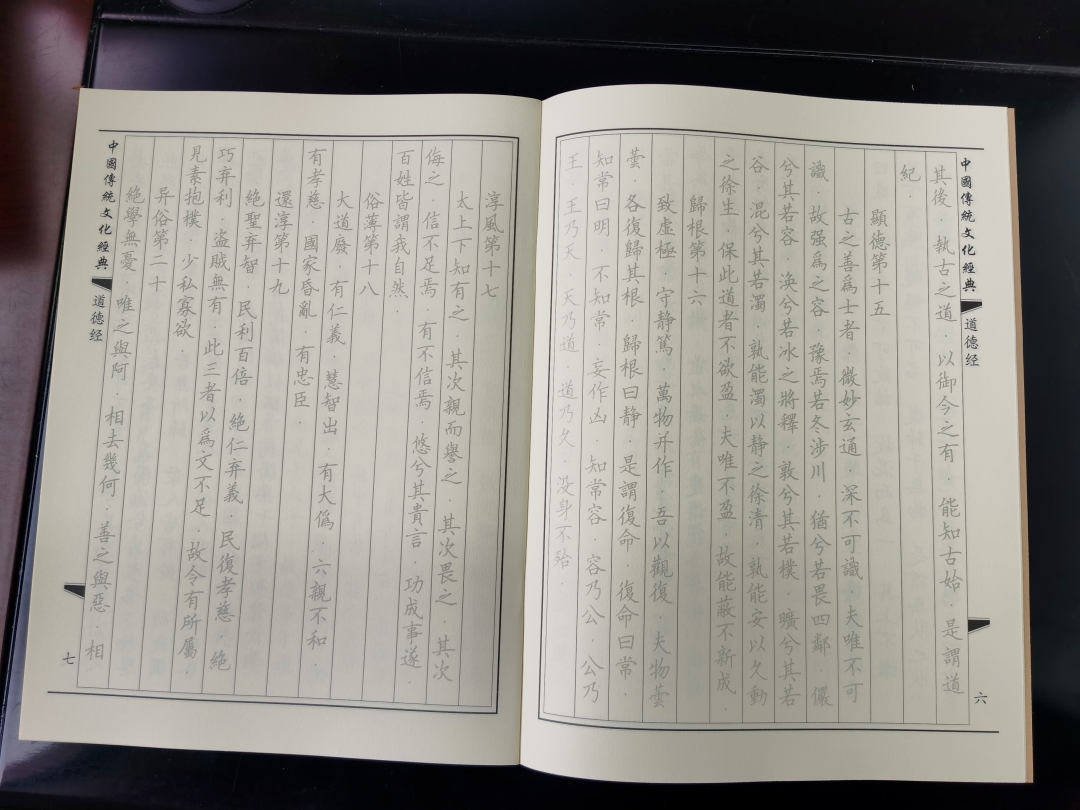 中國傳統文化經典
道德经
六
其後．執古之道．以御今之有．能知古始．是謂道
紀．
顯德第十五
古之善爲士者．微妙玄通．深不可識．夫唯不可
識．故强爲之容．豫焉若冬涉川．猶兮若畏四鄰．儼
兮其若容．渙兮若冰之將釋．敦兮其若樸．曠兮其若
谷．混兮其若濁．孰能濁以静之徐清．孰能安以久動
之徐生．保此道者不欲盈．夫唯不盈．故能蔽不新成．
歸根第十六
致虚極．守静篤．萬物并作．吾以觀復．夫物蕓
蕓．各復歸其根．歸根曰静．是謂復命．復命曰常．
知常曰明．不知常．妄作凶．知常容．容乃公．公乃
王．王乃天．天乃道．道乃久．没身不殆．
淳風第十七
太上下知有之．其次親而譽之．其次畏之．其次
侮之．信不足焉．有不信焉．悠兮其貴言．功成事遂．
百姓皆謂我自然．
俗薄第十八
大道廢．有仁義．慧智出．有大僞．六親不和．
有孝慈．國家昏亂．有忠臣．
還淳第十九
絶聖弃智．民利百倍．絶仁弃義．民復孝慈．絶
巧弃利．盗賊無有．此三者以爲文不足．故令有所屬．
見素抱樸．少私寡欲．
异俗第二十
絶學無憂．唯之與阿．相去幾何．善之與惡．相
中國傳統文化經典
道德经
七